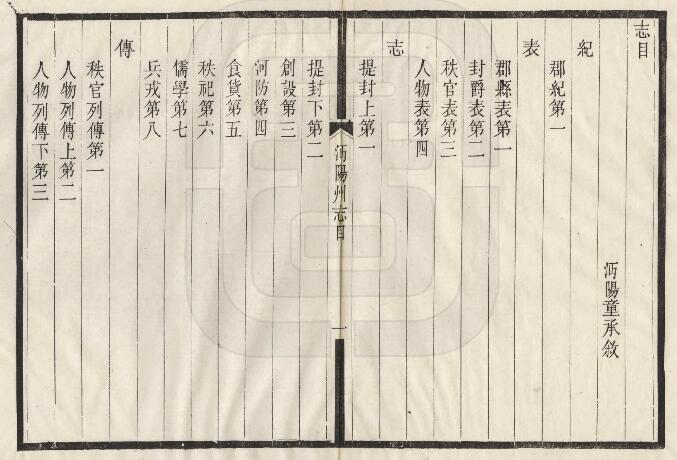 志目
沔陽童承敘
紀
郡紀第一
表
郡縣表第一
封爵表第二
秩官表第三
人物表第四
志
提封上第一
沔陽州志目
一
提封下第二
創設第三
河防第四
食貨第五
秩祀第六
儒學第七
兵戎第八
傳
秩官列傳第一
人物列傳上第二
人物列傳下第三